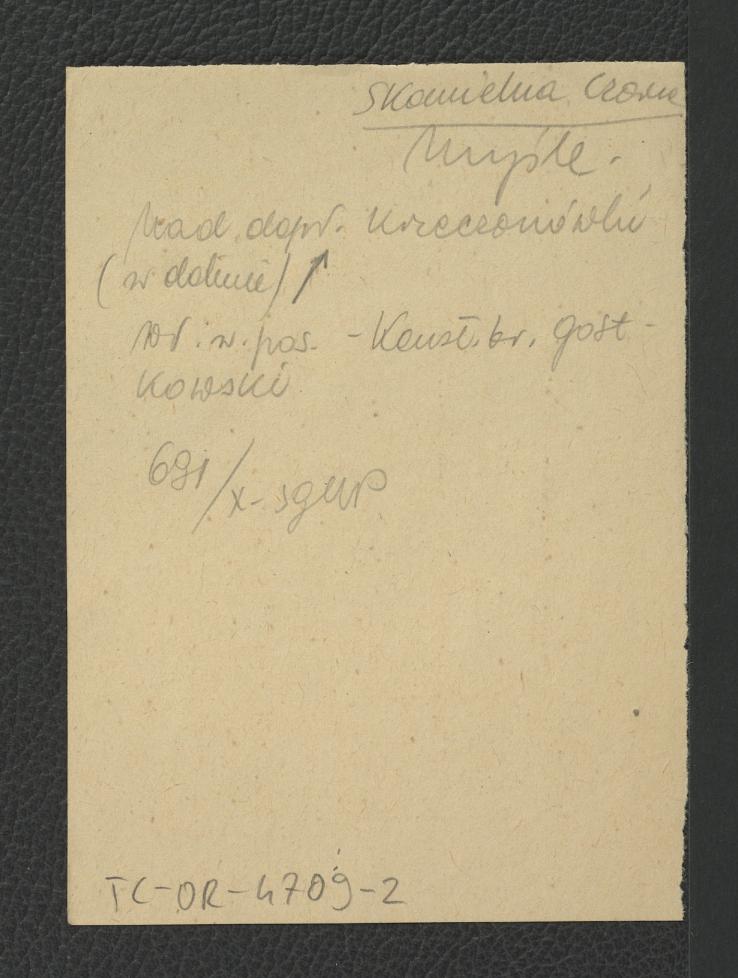 Skomielna Czarn
Myśle.
nad dopł. Krzeczonówki
(w dolinie)
wł. w. pos. - Konst. br. Gost-
kowski
691/X - SGKP
TC-OR-4709-2